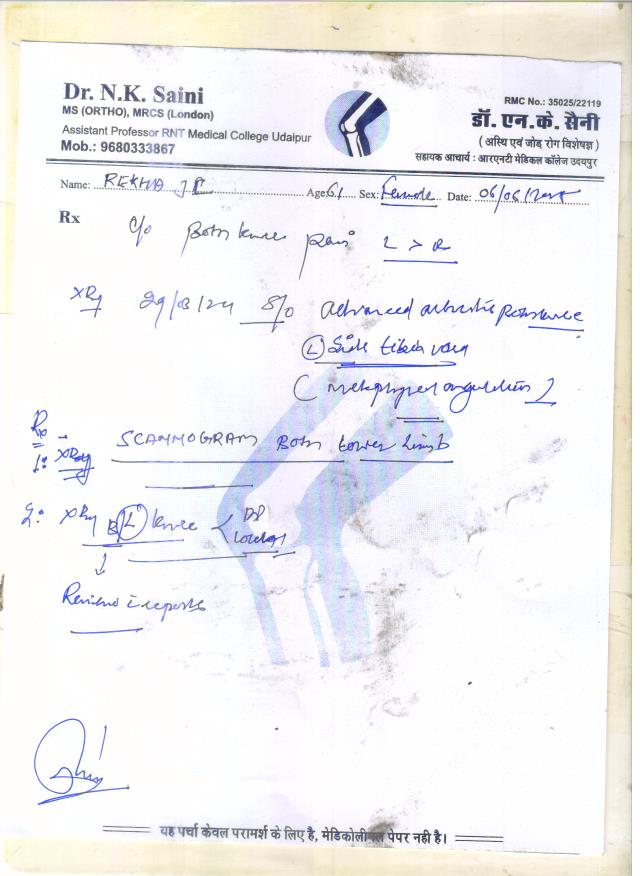 Dr. N.K. Saini
MS (ORTHO), MRCS (London)
Assistant Professor RNT Medical College Udaipur
Mob.: 9680333867
RMC No.: 35025/22119
डॉ. एन.के. सैनी
(अस्थि एवं जोड़ रोग विशेषज्ञ)
सहायक आचार्य : आरएनटी मेडिकल कॉलेज उदयपुर
Name: REKHA Age 61 Sex: Female Date: 06/06/
Rx
c/o Both knee pain L > R
XRy 29/08/24 S/o Advanced arthritis both knee
(L) Side tibia vara
(metaphyseal angulation)
Rx
1: XRay SCANNOGRAM Both Lower Limb
2: XRy B (L) knee < AP
Review c reports
यह पर्चा केवल परामर्श के लिए है, मेडिकोलीगल पेपर नही है।